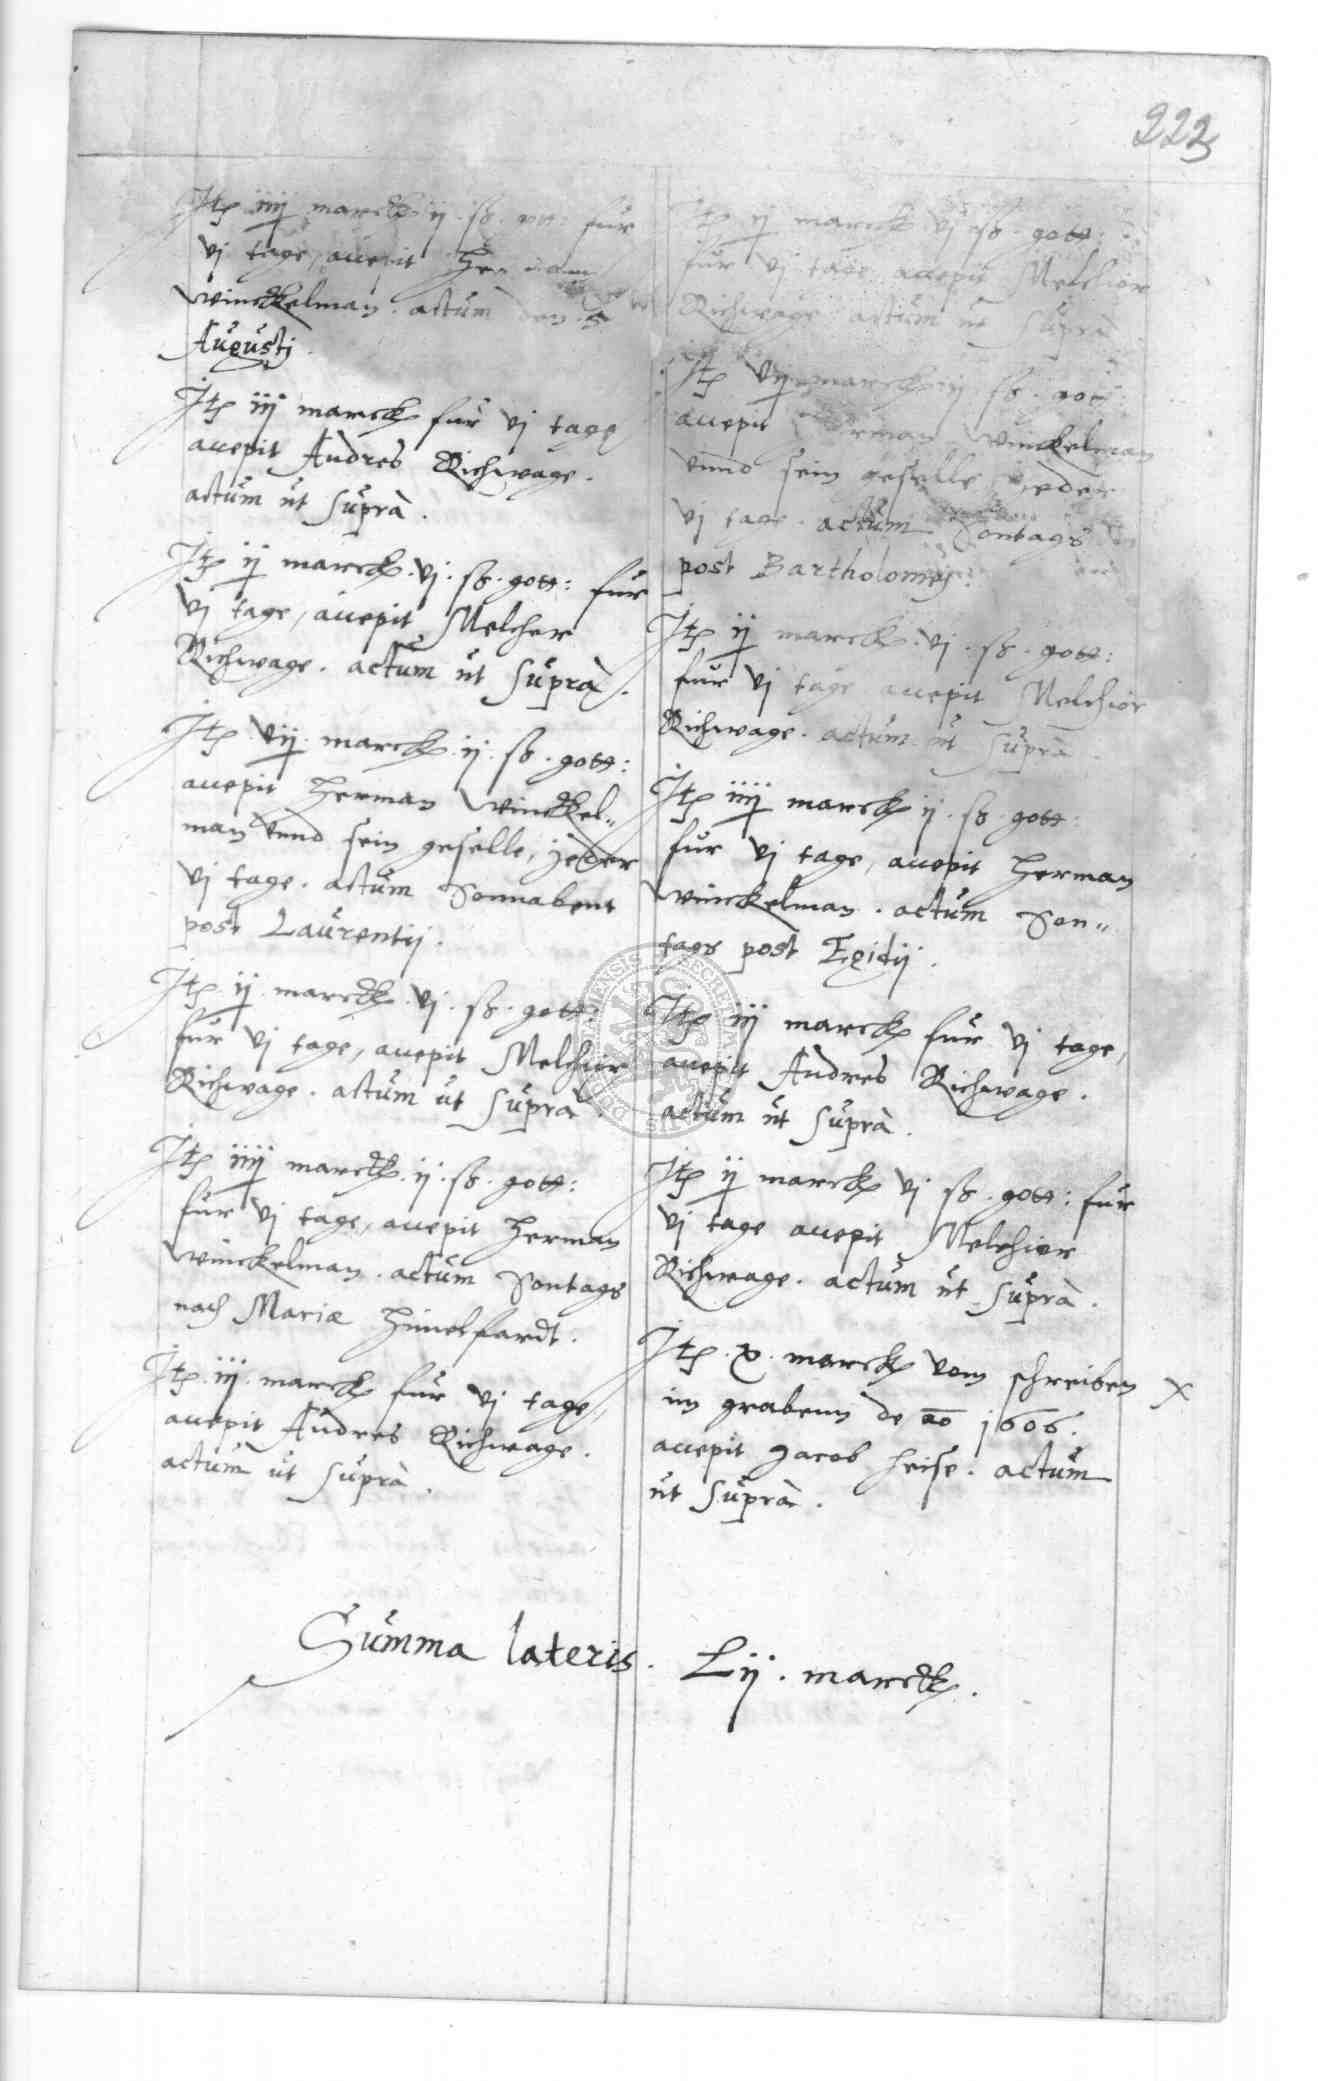 223
Itꝫ iiij marck ij ß gott: für
vj tage, accepit Herman
Winckelman. actum den 5
Augustj.
Itꝫ iij marck für vj tage
accepit Andres Richwage.
actum ut suprà.
Itꝫ ij marck. vj. ß. gott: für
vj tage, accepit Melcher
Richwage. actum ut suprà.
Itꝫ vij. marck. ij. ß. gott:
accepit Herman Winckel-
man vnnd sein geselle, jeder
vj tage. actum Sonnabent
post Laurentij.
Itꝫ ij. marck. vj. ß. gott:
für vj tage, accepit Melchior
Richwage. actum ut suprà.
Itꝫ iiij marck. ij. ß. gott:
für vj tage, accepit Herman
Winckelman. actum Sontags
nach Mariæ Himelfardt.
Itꝫ iij. marck für vj tage,
accepit Andres Richwage.
actum ut suprà.
Itꝫ ij marck vj ß. gott:
für vj tage, accepit Melchior
Richwage actum ut suprà
Itꝫ vij marck ij ß. gott:
accepit Herman Winckelman
vnnd sein geselle, jeder
vj tage. actum Sontags
post Bartholomej.
Itꝫ ij marck. vj. ß. gott:
für vj tage accepit Melchior
Richwage. actum ut suprà.
Itꝫ iiij marck ij. ß. gott:
für vj tage, accepit Herman
Winckelman. actum Son-
tags post Egidij.
Itꝫ iij marck für vj tage,
accepit Andres Richwage.
actum ut suprà.
Itꝫ ij marck vj ß. gott: für
vj tage accepit Melchior
Richwage. actum ut suprà.
Itꝫ. x. marck vom schreiben X
im grabenn de ao 1606.
accepit Jacob Heise. actum
ut suprà.
Summa lateris. Lij. marck.